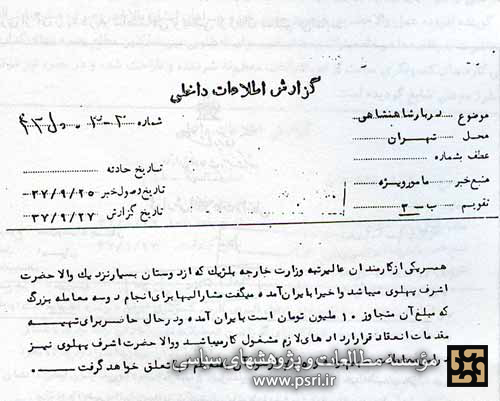 گزارش اطلاعات داخلی
موضوع دربار شاهنشاهی
محل تهران
عطف بشماره
منبع خبر مامور ویژه
تقویم ب-۳
شماره
تاریخ حادثه
تاریخ وصول خبر ۳۷/۹/۲۵
تاریخ گزارش ۳۷/۹/۲۷
همسر یکی از کارمندان عالیرتبه وزارت خارجه بلژیک که از دوستان بسیار نزدیك والا حضرت
اشرف پهلوی میباشد و اخیرا با یران آمده میگفت مشارالیها برای انجام دو سه معامله بزرگ
که مبلغ آن متجاوز ۱۰ ملیون تومان است با یران آمده و در حال حاضر برای تهیه
مقدمات انعقاد قرارداد های لازم مشغول کار میباشد و والا حضرت اشرف پهلوی نیز
تعلق خواهد گرفت
مؤسسه مطالعات و پژوهشهای سیاسی
www.psri.ir